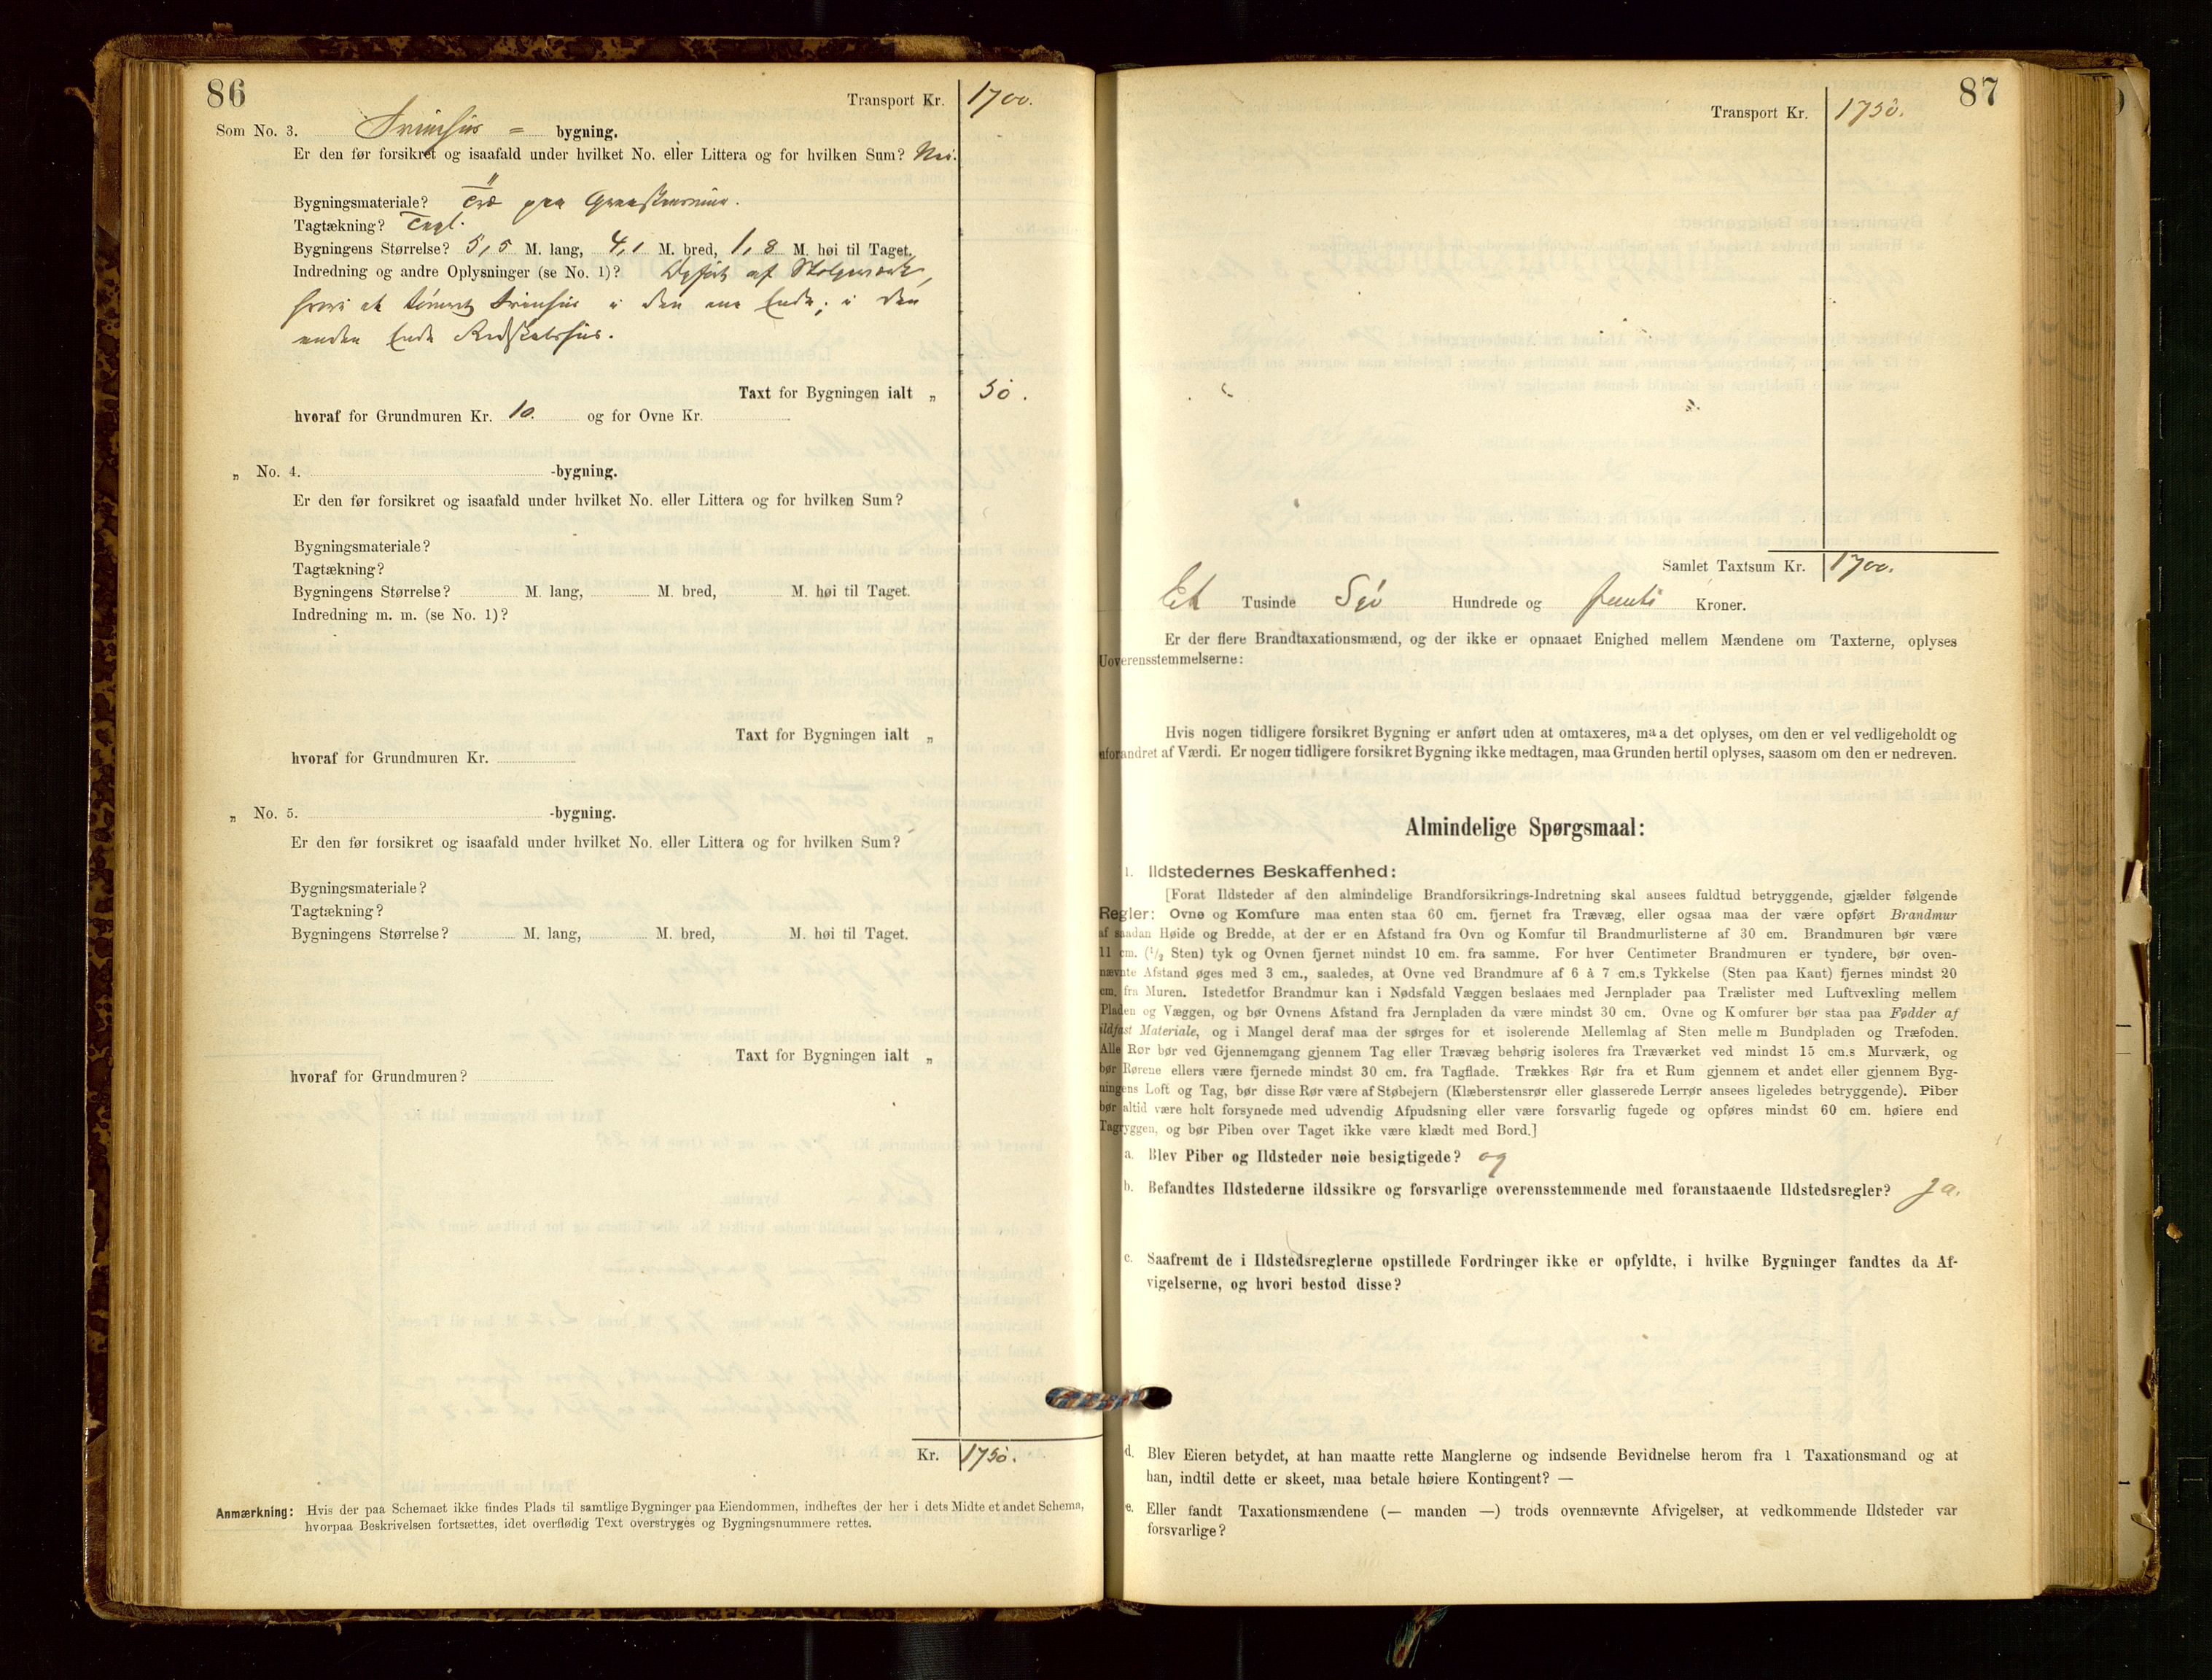 86
Transport Kr. 1700.
Som No. 3. Svinhus - bygning.
Er den før forsikret og isaafald under hvilket No. eller Littera og for hvilken Sum? Nei.
Bygningsmateriale? Træ paa Graastensmur.
Tagtækning? Tagl.
Bygningens Størrelse? 5,5 M. lang, 4,1 M. bred, 1,8 M. høi til Taget.
Indredning og andre Oplysninger (se No. 1)? Opført af Stolpeværk,
hvori et tømret Svinhus i den ene Ende; i den
anden Ende Redskabshus.
Taxt for Bygningen ialt „ 50.
hvoraf for Grundmuren Kr. 10. og for Ovne Kr.
„ No. 4. -bygning.
Er den før forsikret og isaafald under hvilket No. eller Littera og for hvilken Sum?
Bygningsmateriale?
Tagtækning?
Bygningens Størrelse? M. lang, M. bred, M. høi til Taget.
Indredning m. m. (se No. 1)?
Taxt for Bygningen ialt „
hvoraf for Grundmuren Kr.
„ No. 5. -bygning.
Er den før forsikret og isaafald under hvilket No. eller Littera og for hvilken Sum?
Bygningsmateriale?
Tagtækning?
Bygningens Størrelse? M. lang, M. bred, M. høi til Taget.
Taxt for Bygningen ialt „
hvoraf for Grundmuren?
Kr. 1750.
Anmærkning: Hvis der paa Schemaet ikke findes Plads til samtlige Bygninger paa Eiendommen, indheftes der her i dets Midte et andet Schema,
hvorpaa Beskrivelsen fortsættes, idet overflødig Text overstryges og Bygningsnummere rettes.
87
Transport Kr. 1750.
Samlet Taxtsum Kr. 1700.
Et Tusinde Syv Hundrede og femti Kroner.
Er der flere Brandtaxationsmænd, og der ikke er opnaaet Enighed mellem Mændene om Taxterne, oplyses
Uoverensstemmelserne:
Hvis nogen tidligere forsikret Bygning er anført uden at omtaxeres, maa det oplyses, om den er vel vedligeholdt og
uforandret af Værdi. Er nogen tidligere forsikret Bygning ikke medtagen, maa Grunden hertil oplyses, saasom om den er nedreven.
Almindelige Spørgsmaal:
1. Ildstedernes Beskaffenhed:
[Forat Ildsteder af den almindelige Brandforsikrings-Indretning skal ansees fuldtud betryggende, gjælder følgende
Regler: Ovne og Komfure maa enten staa 60 cm. fjernet fra Trævæg, eller ogsaa maa der være opført Brandmur
af saadan Høide og Bredde, at der er en Afstand fra Ovn og Komfur til Brandmurlisterne af 30 cm. Brandmuren bør være
11 cm. (1/2 Sten) tyk og Ovnen fjernet mindst 10 cm. fra samme. For hver Centimeter Brandmuren er tyndere, bør oven-
nævnte Afstand øges med 3 cm., saaledes, at Ovne ved Brandmure af 6 à 7 cm.s Tykkelse (Sten paa Kant) fjernes mindst 20
cm. fra Muren. Istedetfor Brandmur kan i Nødsfald Væggen beslaaes med Jernplader paa Trælister med Luftvexling mellem
Pladen og Væggen, og bør Ovnens Afstand fra Jernpladen da være mindst 30 cm. Ovne og Komfurer bør staa paa Fødder af
ildfast Materiale, og i Mangel deraf maa der sørges for et isolerende Mellemlag af Sten mellem Bundpladen og Træfoden.
Alle Rør bør ved Gjennemgang gjennem Tag eller Trævæg behørig isoleres fra Træværket ved mindst 15 cm.s Murværk, og
bør Rørene ellers være fjernede mindst 30 cm. fra Tagflade. Trækkes Rør fra et Rum gjennem et andet eller gjennem Byg-
ningens Loft og Tag, bør disse Rør være af Støbejern (Klæberstensrør eller glasserede Lerrør ansees ligeledes betryggende). Piber
bør altid være helt forsynede med udvendig Afpudsning eller være forsvarlig fugede og opføres mindst 60 cm. høiere end
Tagryggen, og bør Piben over Taget ikke være klædt med Bord.]
a. Blev Piber og Ildsteder nøie besigtigede? og
b. Befandtes Ildstederne ildssikre og forsvarlige overensstemmende med foranstaaende Ildstedsregler? Ja.
c. Saafremt de i Ildstedsreglerne opstillede Fordringer ikke er opfyldte, i hvilke Bygninger fandtes da Af-
vigelserne, og hvori bestod disse?
d. Blev Eieren betydet, at han maatte rette Manglerne og indsende Bevidnelse herom fra 1 Taxationsmand og at
han, indtil dette er skeet, maa betale høiere Kontingent? —
e. Eller fandt Taxationsmændene (— manden —) trods ovennævnte Afvigelser, at vedkommende Ildsteder var
forsvarlige?